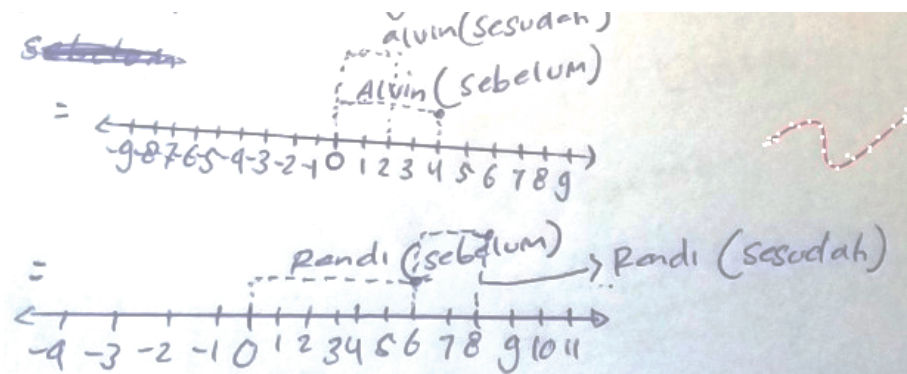 alvin (sesudah)
Alvin (sebelum)
=
-9 -8 -7 -6 -5 -4 -3 -2 -1 0 1 2 3 4 5 6 7 8 9
Randi (sebelum)
Randi (sesudah)
=
-4 -3 -2 -1 0 1 2 3 4 5 6 7 8 9 10 11